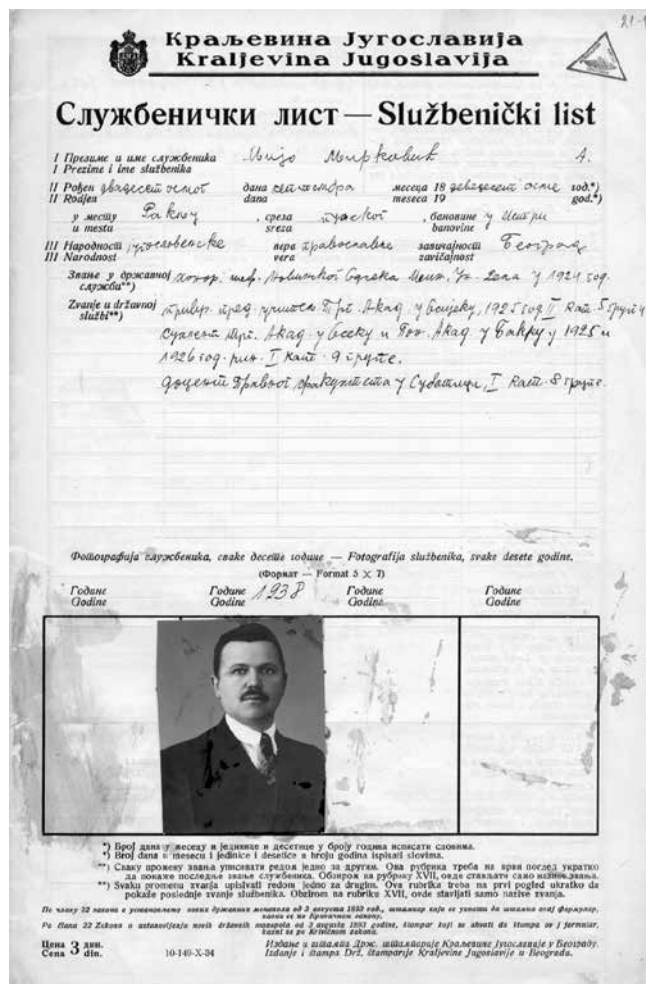 21-1
Краљевина Југославија
Kraljevina Jugoslavija
Службенички лист — Službenički list
I Презиме и име службеника Мијо Мирковић А.
I Prezime i ime službenika
II Рођен двадесет осмог дана септембра месеца 18 деведесет осме год.*)
II Rodjen dana meseca 19 god.*)
у месту Раклу , среза пулској , бановине у Истри
u mestu sreza banovine
III Народност југословенске вера православне завичајност Београд
III Narodnost vera zavičajnost
Звање у државној служби**) хонор. шеф. Новинског Одсека Мин. Ин. Дела у 1924 год.
Zvanje u državnoj službi**) привр. пред. Трг. Акад. у Осијеку, 1925 год II кат. 5 групе
суплент Трг. Акад. у Осеку и Пом. Акад. у Бакру у 1925 и
1926 год. I кат. 9 групе.
доцент Правног факултета у Суботици, I кат. 8 групе.
Фотографија службеника, сваке десете године — Fotografija službenika, svake desete godine.
(Формат — Format 5 X 7)
Године Године 1938 Године Године
Godine Godine Godine Godine
*) Број дана у месецу и јединице и десетице у броју година исписати словима.
*) Broj dana u mesecu i jedinice i desetice u broju godina ispisati slovima.
**) Сваку промену звања уписивати редом једно за другим. Ова рубрика треба на први поглед укратко
да покаже последње звање службеника. Обзиром на рубрику XVII, овде стављати само називе звања.
**) Svaku promenu zvanja upisivati redom jedno za drugim. Ova rubrika treba na prvi pogled ukratko da
pokaže poslednje zvanje službenika. Obzirom na rubriku XVII, ovde stavljati samo nazive zvanja.
По члану 22 закона о установљењу нових државних монопола од 3 августа 1893 год., штампар који се ухвати да штампа овај формулар,
казни се по Кривичном закону.
Po članu 22 Zakona o ustanovljenju novih državnih monopola od 3 avgusta 1893 godine, štampar koji se uhvati da štampa ov j formular,
kazni se po Krivičnom zakonu.
Цена 3 дин.
Cena 3 din.
10-149-X-34
Издање и штампа Држ. штампарије Краљевине Југославије у Београду.
Izdanje i štampa Drž. štamparije Kraljevine Jugoslavije u Beogradu.